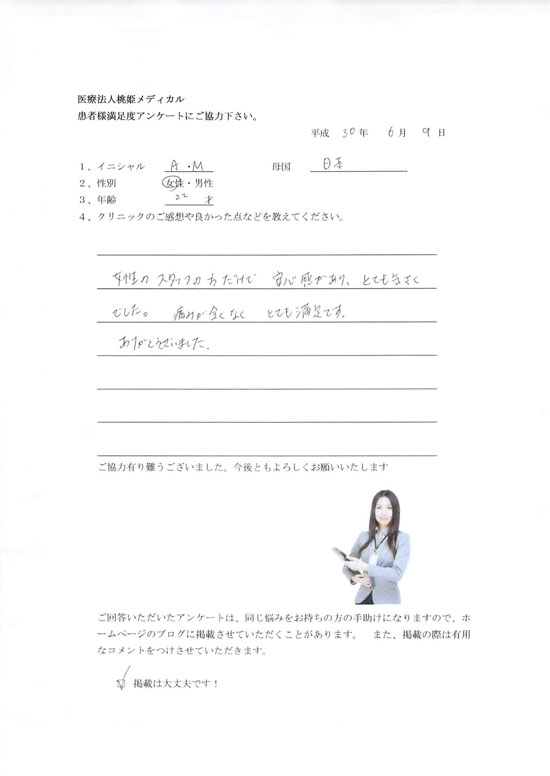 医療法人桃姫メディカル
患者様満足度アンケートにご協力下さい。
平成 30年 6月 9日
1、イニシャル A・M 母国 日本
2、性別 女性・男性
3、年齢 22 才
4、クリニックのご感想や良かった点などを教えてください。
女性のスタッフの方だけで 安心感があり、とても気さく
でした。 痛みが全くなく とても満足です。
ありがとうございました。
ご協力有り難うございました。今後ともよろしくお願いいたします
ご回答いただいたアンケートは、同じ悩みをお持ちの方の手助けになりますので、ホ
ームページのブログに掲載させていただくことがあります。 また、掲載の際は有用
なコメントをつけさせていただきます。
☑ 掲載は大丈夫です！